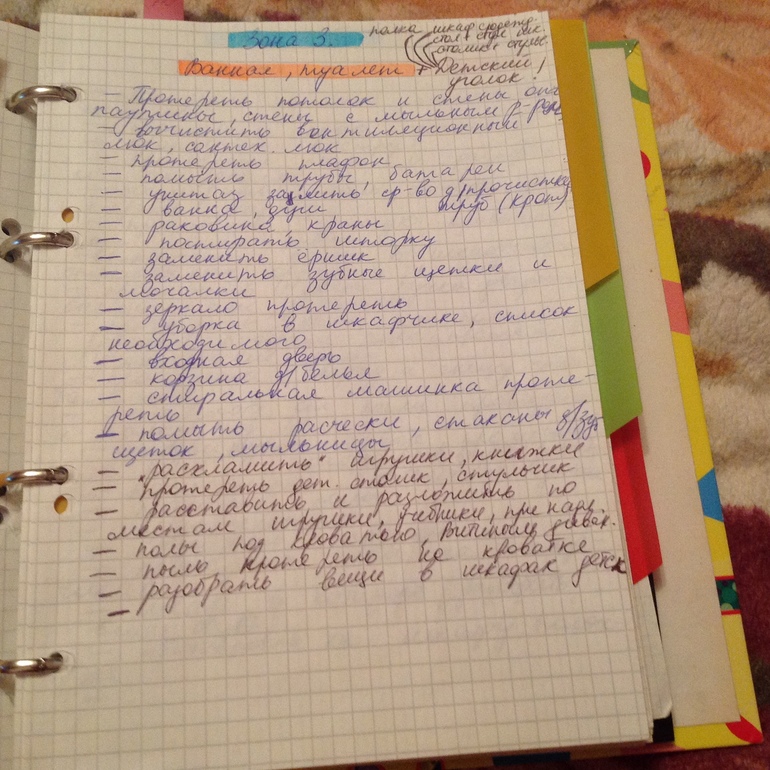 Зона 3.
полка шкаф
стол + стул
столик + стулья
Ванная, туалет + Детский
уголок!
— Протереть потолок и стены от
паутины, стены с мыльным р-ром
— вычистить вентиляционный
люк, сантех. люк
— протереть плафон
— помыть трубы, батареи
— унитаз залить ср-во д/прочистки
— ванна, душ труб (крот)
— раковина, краны
— постирать шторку
— заменить ёршик
— заменить зубные щетки и
мочалки
— зеркало протереть
— уборка в шкафчике, список
необходимого
— входная дверь
— корзина д/белья
— стиральная машинка проте-
реть
— помыть расчески, стаканы д/зуб.
щеток, мыльницы
— "расхламить" игрушки, книжки
— протереть дет. столик, стульчик
— расставить и разложить по
местам игрушки, учебники,
— полы под кроватью,
— пыль протереть на кроватке
— разобрать вещи в шкафах детск
—